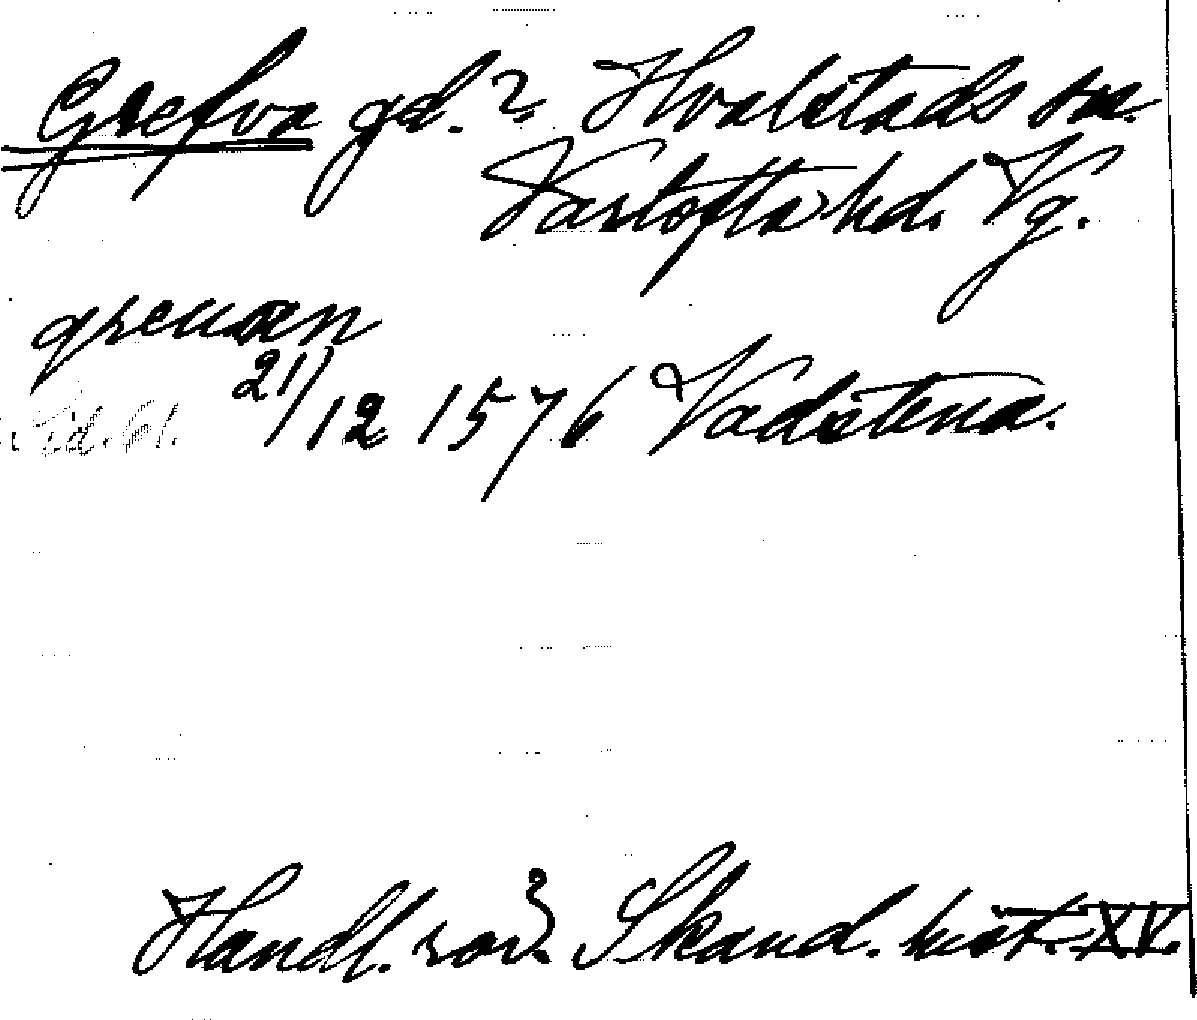 Grefva gd.? Hvalstads sn.
Vartofta hd. Vg.
greuan
21/12 1576 Vadstena.
Sid. 61.
Handl. rör. Skand. hist. XV.